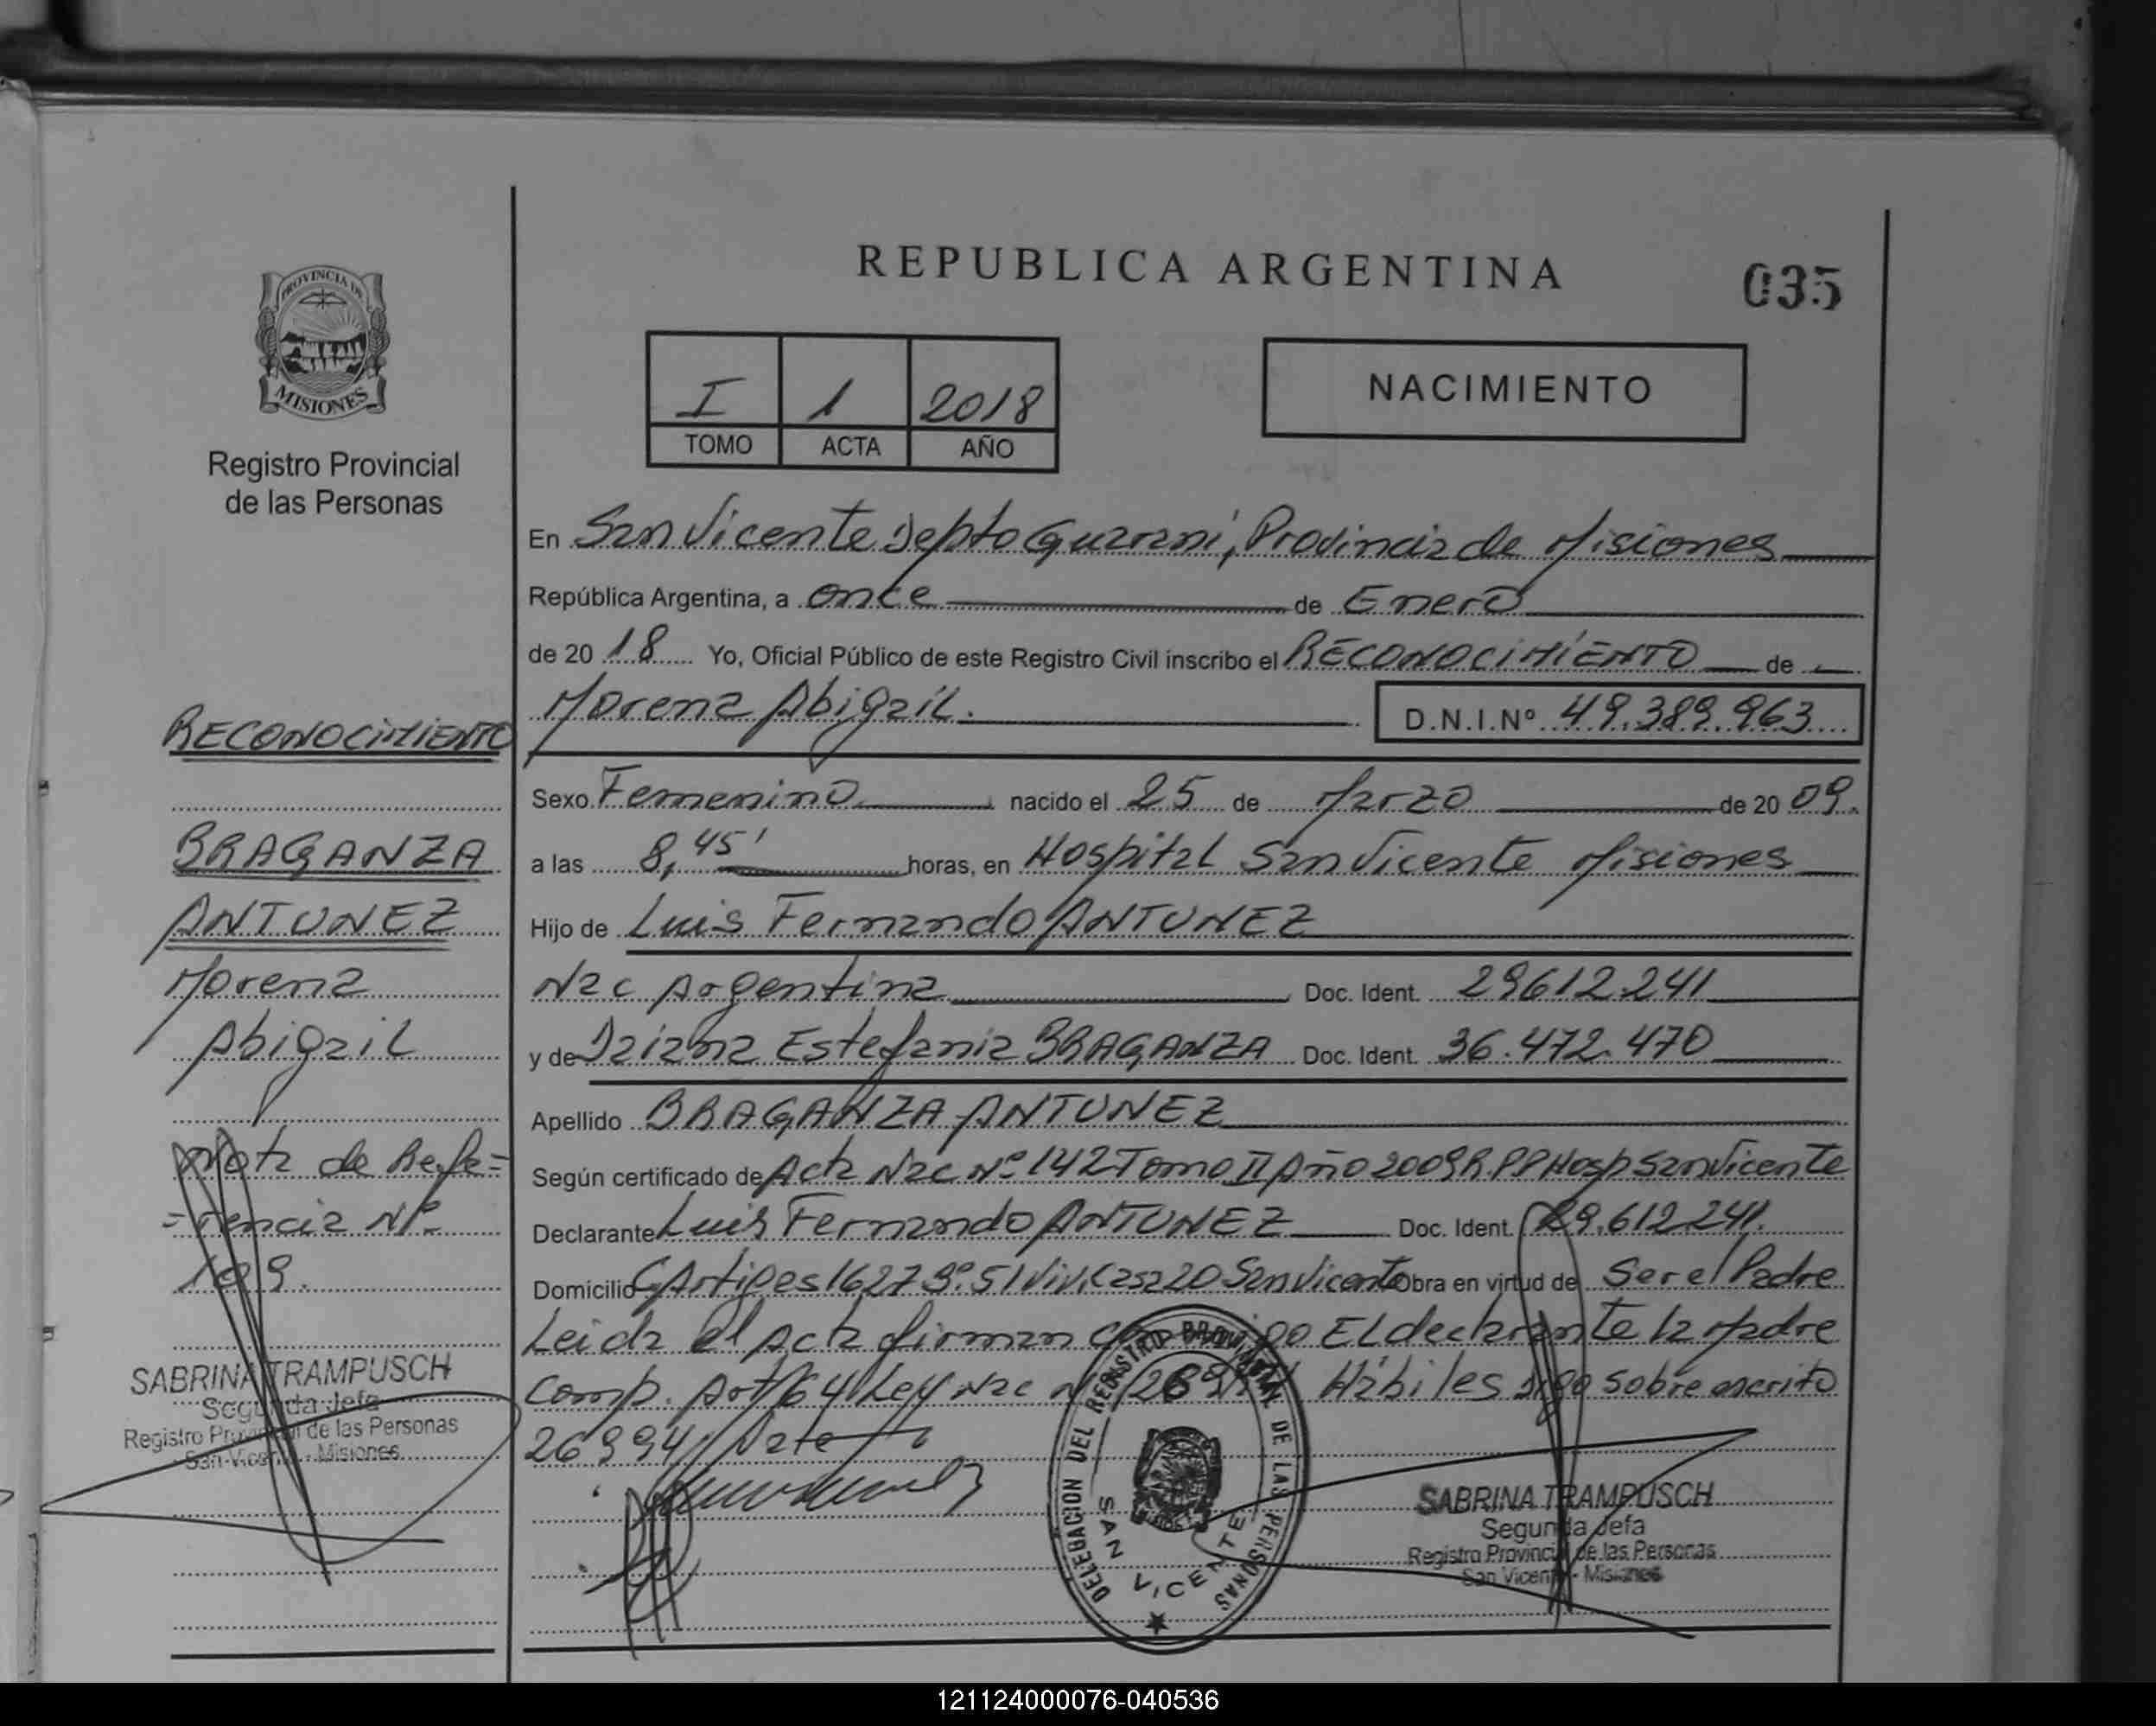 REPUBLICA ARGENTINA
035
PROVINCIA DE
MISIONES
Registro Provincial
de las Personas
I 1 2018
TOMO ACTA AÑO
NACIMIENTO
En San Vicente Depto Guarani, Provincia de Misiones
República Argentina, a once de Enero
de 20 18 Yo, Oficial Público de este Registro Civil inscribo el RECONOCIMIENTO de
Morena Abigail. D.N.I.Nº 49.389.963
Sexo Femenino nacido el 25 de Marzo de 20 09.
a las 8,45' horas, en Hospital San Vicente Misiones
Hijo de Luis Fernando ANTUNEZ
Nac Argentina Doc. Ident. 29612.241
y de Daiana Estefania BRAGANZA Doc. Ident. 36.472.470
Apellido BRAGANZA ANTUNEZ
Según certificado de Acta Nac Nº 142 Tomo II Año 2009 R.P.P Hosp San Vicente
Declarante Luis Fernando ANTUNEZ Doc. Ident. 29.612.241.
Domicilio Artiges 51 Viv. Casa 20 San Vicente Obra en virtud de Ser el Padre
Leida el Acta firman El declarante la Madre
Comp. Art 64 Ley Hábiles digo sobre escrito
26994
RECONOCIMIENTO
BRAGANZA
ANTUNEZ
Morena
Abigail
Nota de Refe=
=rencia Nº
109.
SABRINA TRAMPUSCH
Segunda Jefa
Registro Provincial de las Personas
San Vicente - Misiones
DELEGACION DEL REGISTRO PROVINCIAL DE LAS PERSONAS
SAN VICENTE
SABRINA TRAMPUSCH
Segunda Jefa
Registro Provincial de las Personas
San Vicente - Misiones
121124000076-040536